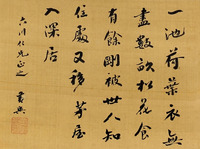 一池荷葉衣無
盡數畝松花食
有餘剛被世人知
住處又移茅屋
入深居
六川仁兄正之
黃興